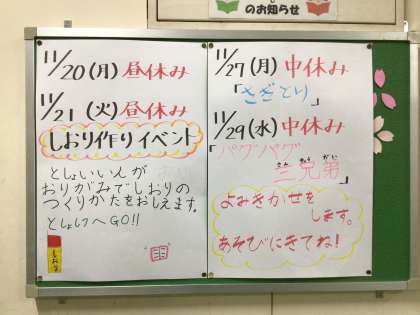 のお知らせ
11/20(月)昼休み
11/21(火)昼休み
しおり作りイベント
としょいいんが
おりがみでしおりの
つくりかたをおしえます。
としょしつへGO!!
しおり
11/27(月)中休み
「さぎとり」
11/29(水)中休み
「パグパグ
三兄弟」
よみきかせを
します。
あそびにきてね!